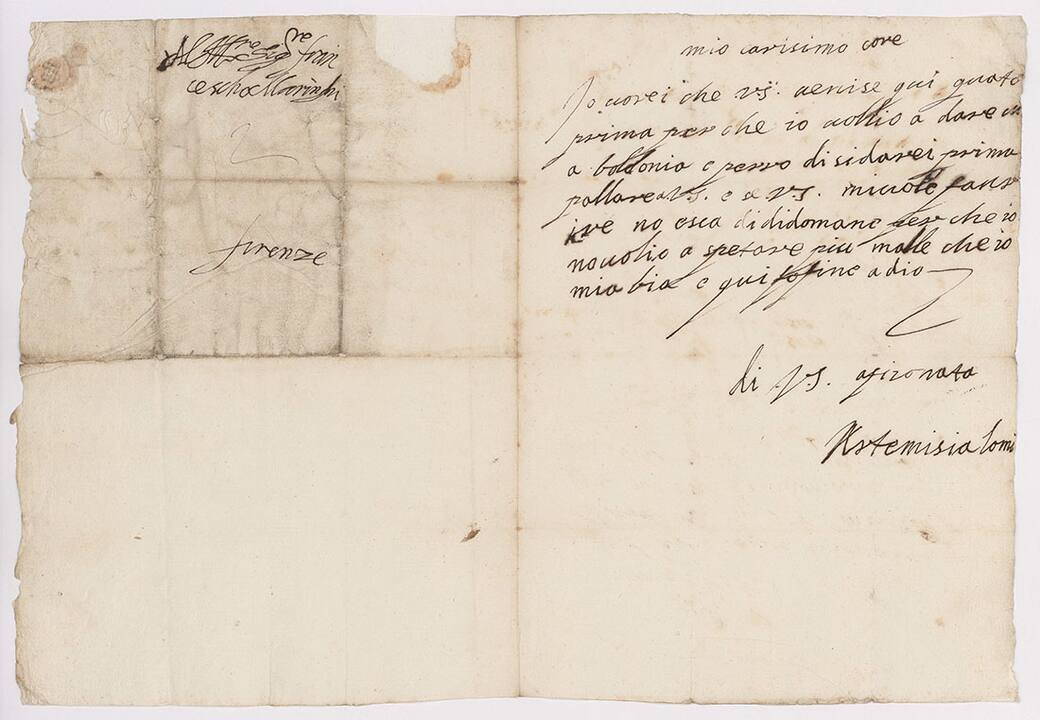 Al Mtro Sigre fran
cescho Maringhi
firenze
mio carisimo core
Io vorei che v.s. venise qui quato
prima per che io vollio a dare
a bollonia e perro disidarei prima
pallare a V.S. e se V.S. mi vole
no esca di didomane per che io
no volio a spetare piu malle che io
mia bia e qui fo fine a dio
di V.S. afizonata
Artemisia lomi